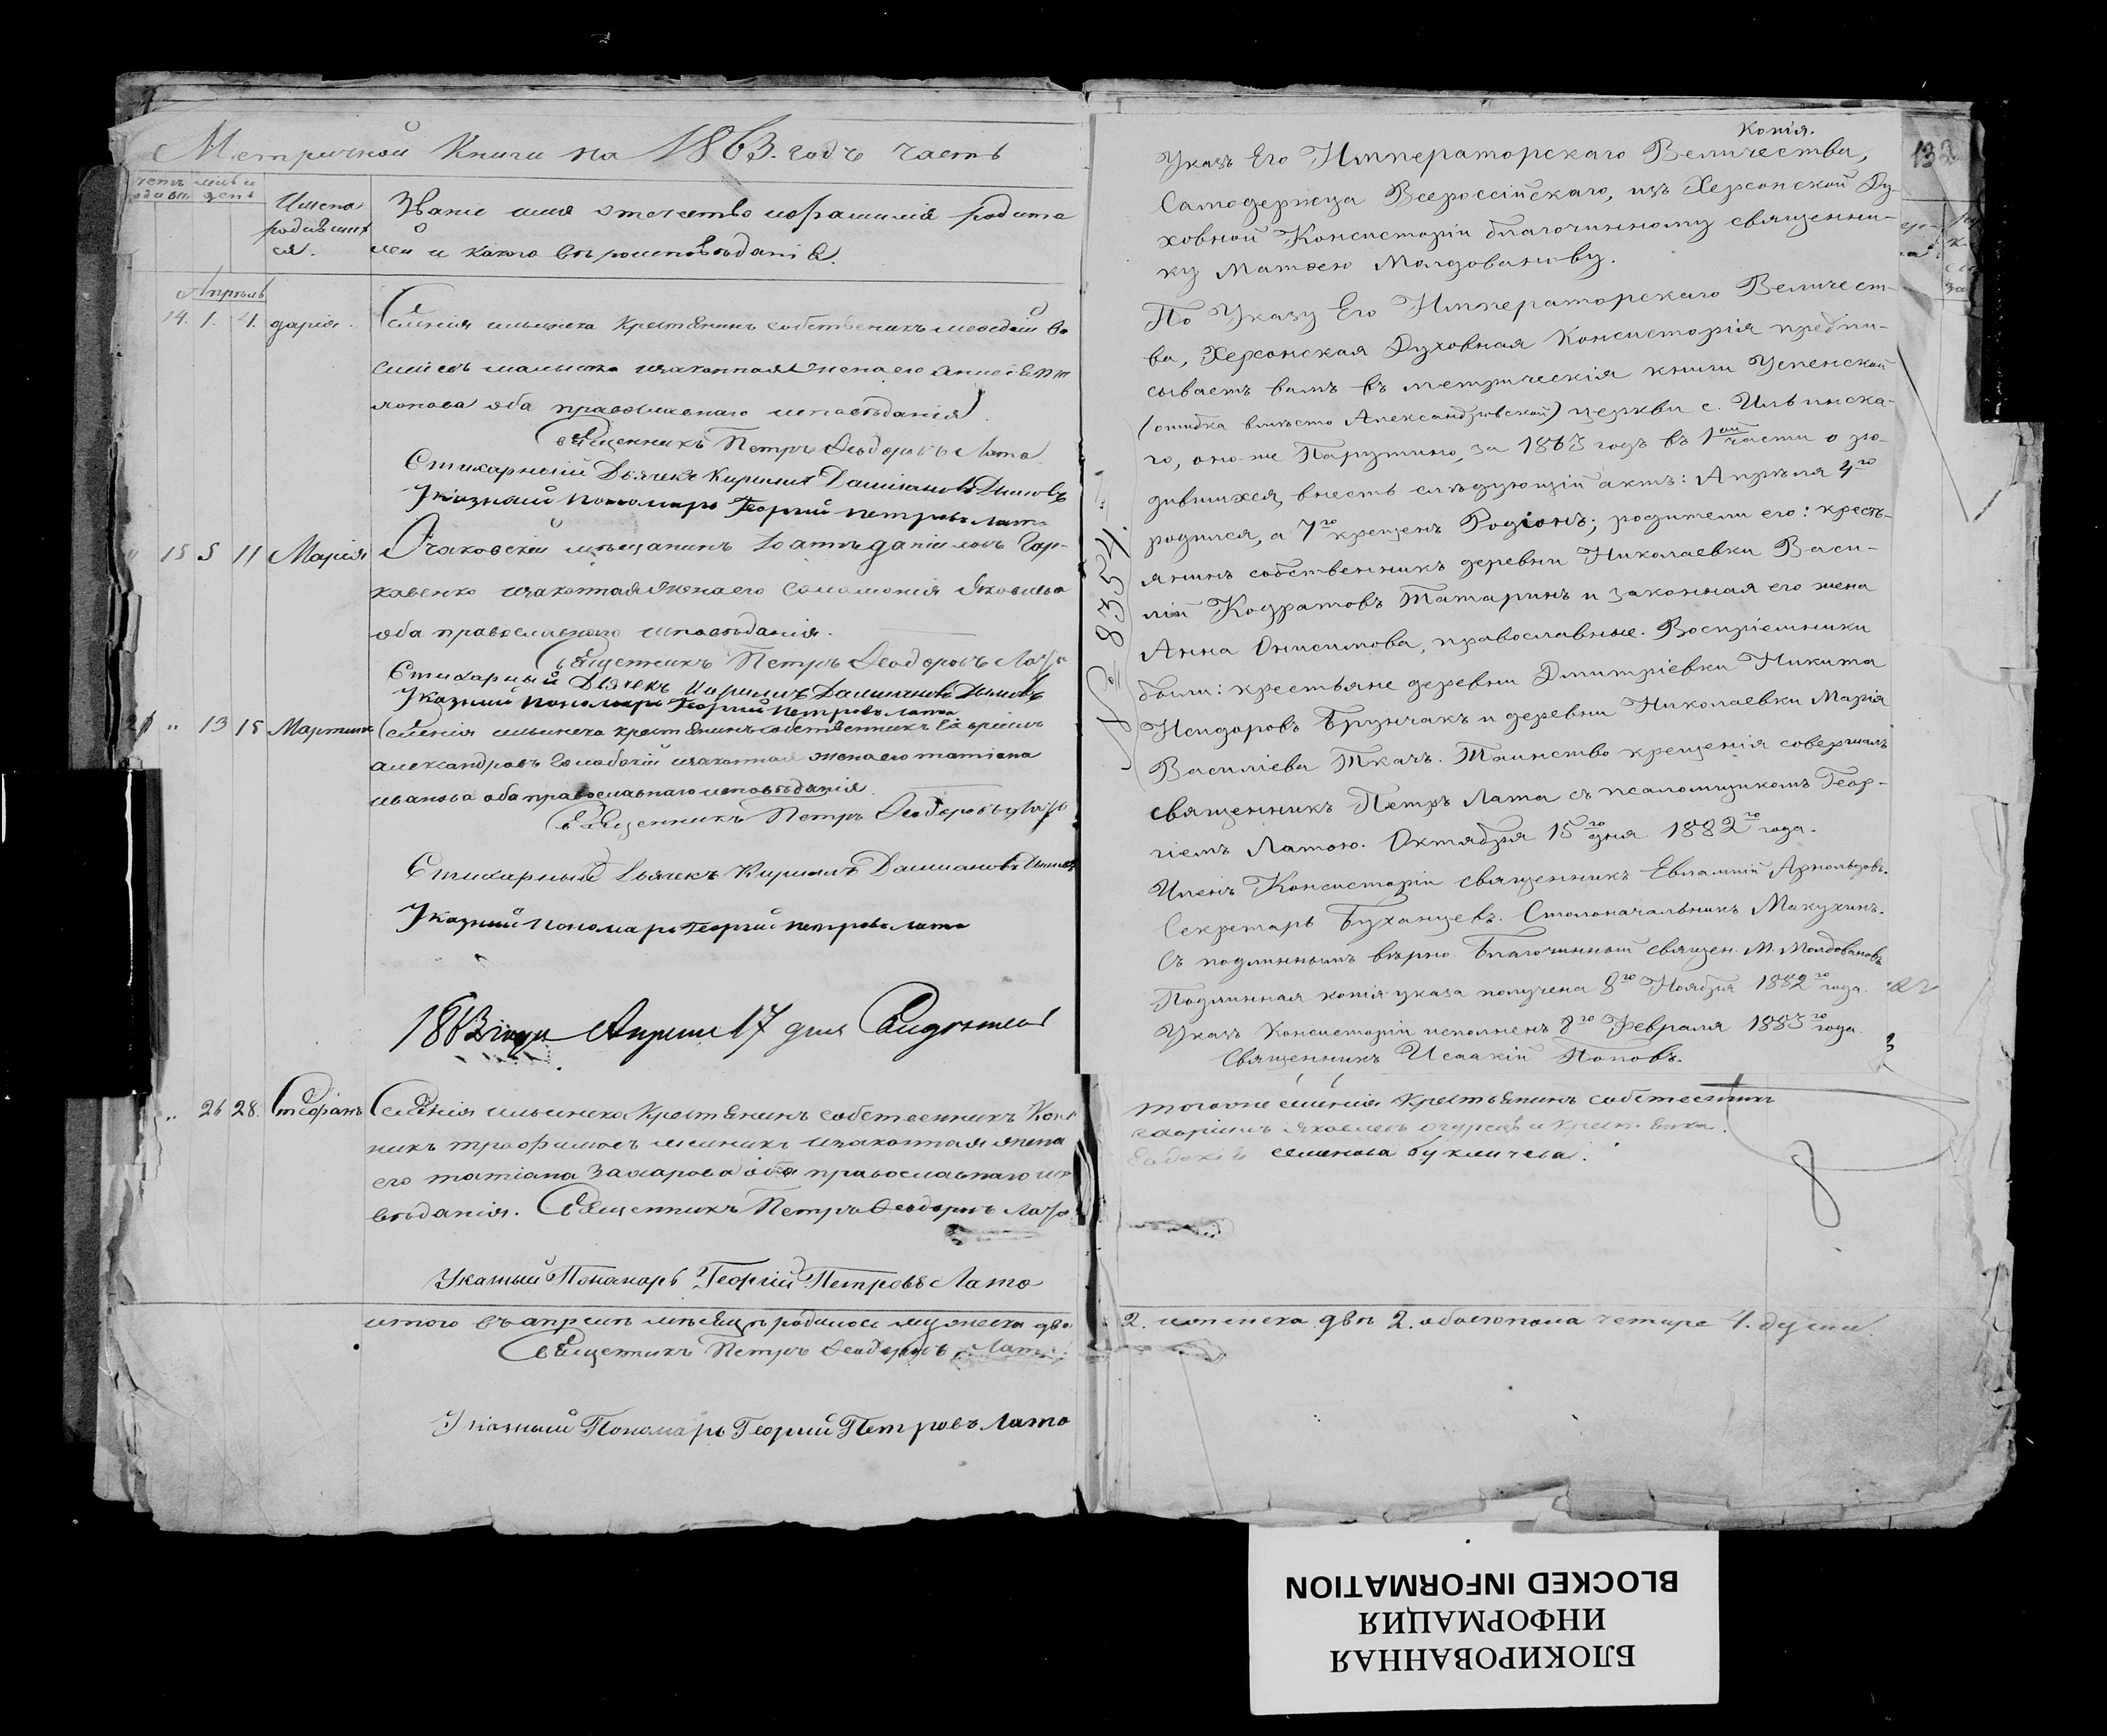 Метричной Книги на 1863. годъ часть
Имена
родивших
ся.
Званіе имя отечество и фамилія родите
лей и какого вѣроисповѣданія.
Апрѣль
14. 1. 4. дарія.
Селенія ильинска крестьянинъ собственникъ
законная жена его
оба православнаго исповѣданія.
Священникъ Петръ Феодоровъ Лата
Стихарный Дьячекъ Кирилъ Даміановъ
Указный пономарь Георгій Петровъ Лата
15 5 11 Марія
Очаковскій мещанинъ
и законная жена его соломонія яковлева
оба православнаго исповѣданія.
Священникъ Петръ Феодоровъ Лата
Стихарный Дьячекъ Кирилъ Даміановъ
Указный пономарь Георгій Петровъ Лата
13 15
Селенія ильинска крестьянинъ собственникъ
александровъ и законная жена его татіана
иванова оба православнаго исповѣданія.
Священникъ Петръ Феодоровъ Лата
Стихарный Дьячекъ Кирилъ Даміановъ
Указный пономарь Георгій Петровъ Лата
1863 года Апреля 17 дня
26 28. Стефанъ
Селенія ильинска крестьянинъ собственникъ
трофимовъ и законная жена
его татіана Захарова оба православнаго испо
вѣданія. Священникъ Петръ Феодоровъ Лата
Указный Пономарь Георгій Петровъ Лата
итого въ апреле месяце родилось мужеска два
Священникъ Петръ Феодоровъ Лата
Указный Пономарь Георгій Петровъ Лата
Копія.
132
Указъ Его Императорскаго Величества,
Самодержца Всероссійскаго, изъ Херсонской Ду-
ховной Консисторіи благочинному священни-
ку Матѳею Молдованову.
По Указу Его Императорскаго Величест-
ва, Херсонская Духовная Консисторія предпи-
сываетъ вамъ въ метрическія книги Успенской
(ошибка вмѣсто Александровской) церкви с. Ильинска-
го, оно-же Парутино, за 1863 годъ въ 1ой части о ро-
дившихся, внесть слѣдующій актъ: Апрѣля 4го
родился, а 7го крещенъ Родіонъ; родители его: кресть-
янинъ собственникъ деревни Николаевки Васи-
лій Кодратовъ Татаринъ и законная его жена
Анна Онисимова, православные. Воспріемники
были: крестьяне деревни Дмитріевки Никита
Исидоровъ Брунчакъ и деревни Николаевки Марія
Василіева Ткачъ. Таинство крещенія совершалъ
священникъ Петръ Лата съ псаломщикомъ Геор-
гіемъ Латою. Октября 15го дня 1882го года.
Членъ Консисторіи священникъ Евлампій Арнольдовъ.
Секретарь Буханцевъ. Столоначальникъ Макухинъ.
Съ подлиннымъ вѣрно. Благочинный священ. М. Молдовановъ
Подлинная копія указа получена 8го Ноября 1882го года.
Указъ Консисторіи исполненъ 8го Февраля 1883го года.
Священникъ Исаакій Поповъ.
№ 8354.
того же селенія крестьянинъ собственникъ
гавріилъ яковлевъ огурцовъ и крестьянка
семенова
2. женска две 2. обоего пола четыре 4. души.
БЛОКИРОВАННАЯ
ИНФОРМАЦИЯ
BLOCKED INFORMATION